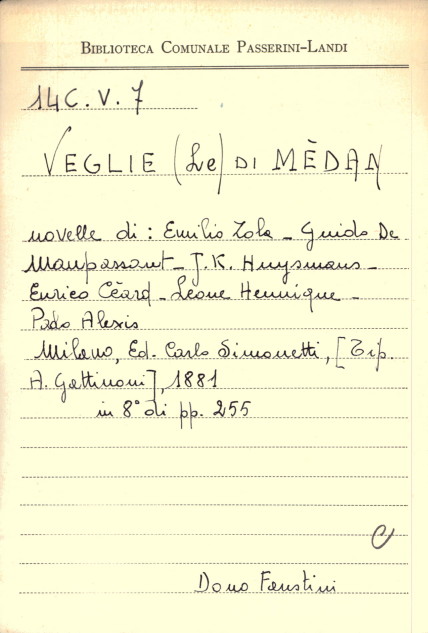 BIBLIOTECA COMUNALE PASSERINI-LANDI
14C.V.7
VEGLIE (Le) DI MÈDAN
novelle di: Emilio Zola - Guido De
Maupassant - J.K. Huysmans -
Enrico Cèard - Leone Hennique -
Paolo Alexis
Milano, Ed. Carlo Simonetti, [Tip.
A. Gattinoni], 1881
in 8° di pp. 255
C
Dono Faustini